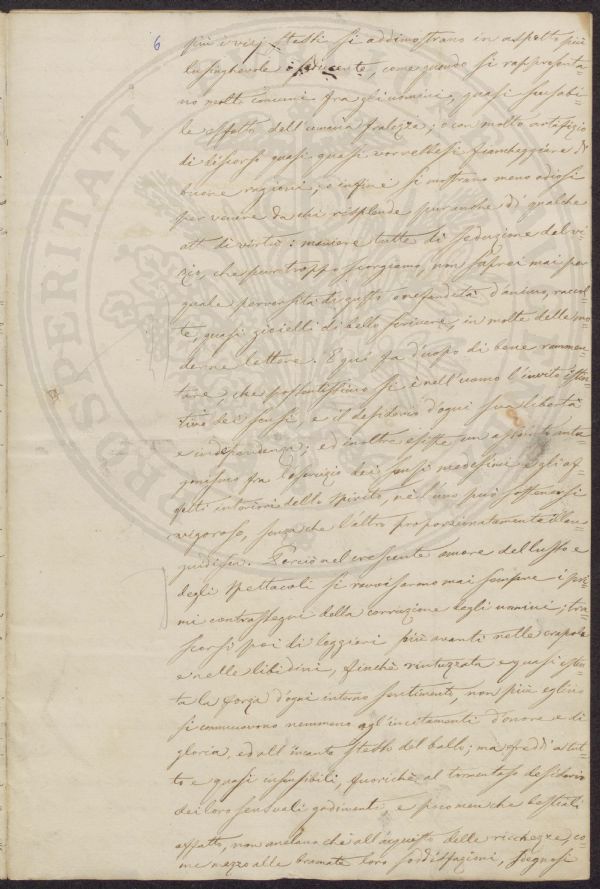 6
più i vizj stessi si addimostrano in aspetto più
lusinghevole e seducente, come quando si rappresenta-
no molto comuni fra gli uomini, quasi scusabi-
le effetto dell'umana fralezza; o con molto artifizio
di discorso quasi quasi vorrebbesi fiancheggiare di
buone ragioni; o infine si mostrano meno odiosi
per venire da chi risplende pur anche di qualche
atto di virtù: maniere tutte di seduzione del vi-
zio, che pur troppo scorgiamo, non saprei mai per
quale perversità di gusto o nefandità d'animo, raccol-
te, quasi gioielli di bello scrivere, in molte delle mo-
derne lettere. E quì fa d'uopo di bene rammen-
tare che possentissimo si è nell'uomo l'invito istin-
tivo dei sensi, e il desiderio d'ogni sua libertà
e indipendenza; ed inoltre esiste un assoluto anta-
gonismo fra l'esercizio dei sensi medesimi e gli af-
fetti interiori dello spirito, nè l'uno può sostenersi
vigoroso, senza che l'altro proporzionatamente illan-
guidisca. Perciò nel crescente amore del lusso e
degli spettacoli si ravvisarono mai sempre i pri-
mi contrassegni della corruzione degli uomini; tra-
scorsi poi di leggieri più avanti nelle crapole
e nelle libidini, finchè rintuzzata e quasi estin-
ta la forza d'ogni interno sentimento, non più eglino
si commuovono nemmeno agl'incitamenti d'onore e di
gloria, ed all'incanto stesso del bello; ma freddi a tut-
to e quasi insensibili, fuorichè al tormentoso desiderio
dei loro sensuali godimenti, e poco men che bestiali
affatto, non anelano che all'acquisto delle ricchezze, co-
me mezzo alle bramate loro soddisfazioni, sdegnosi
PROSPERITATI